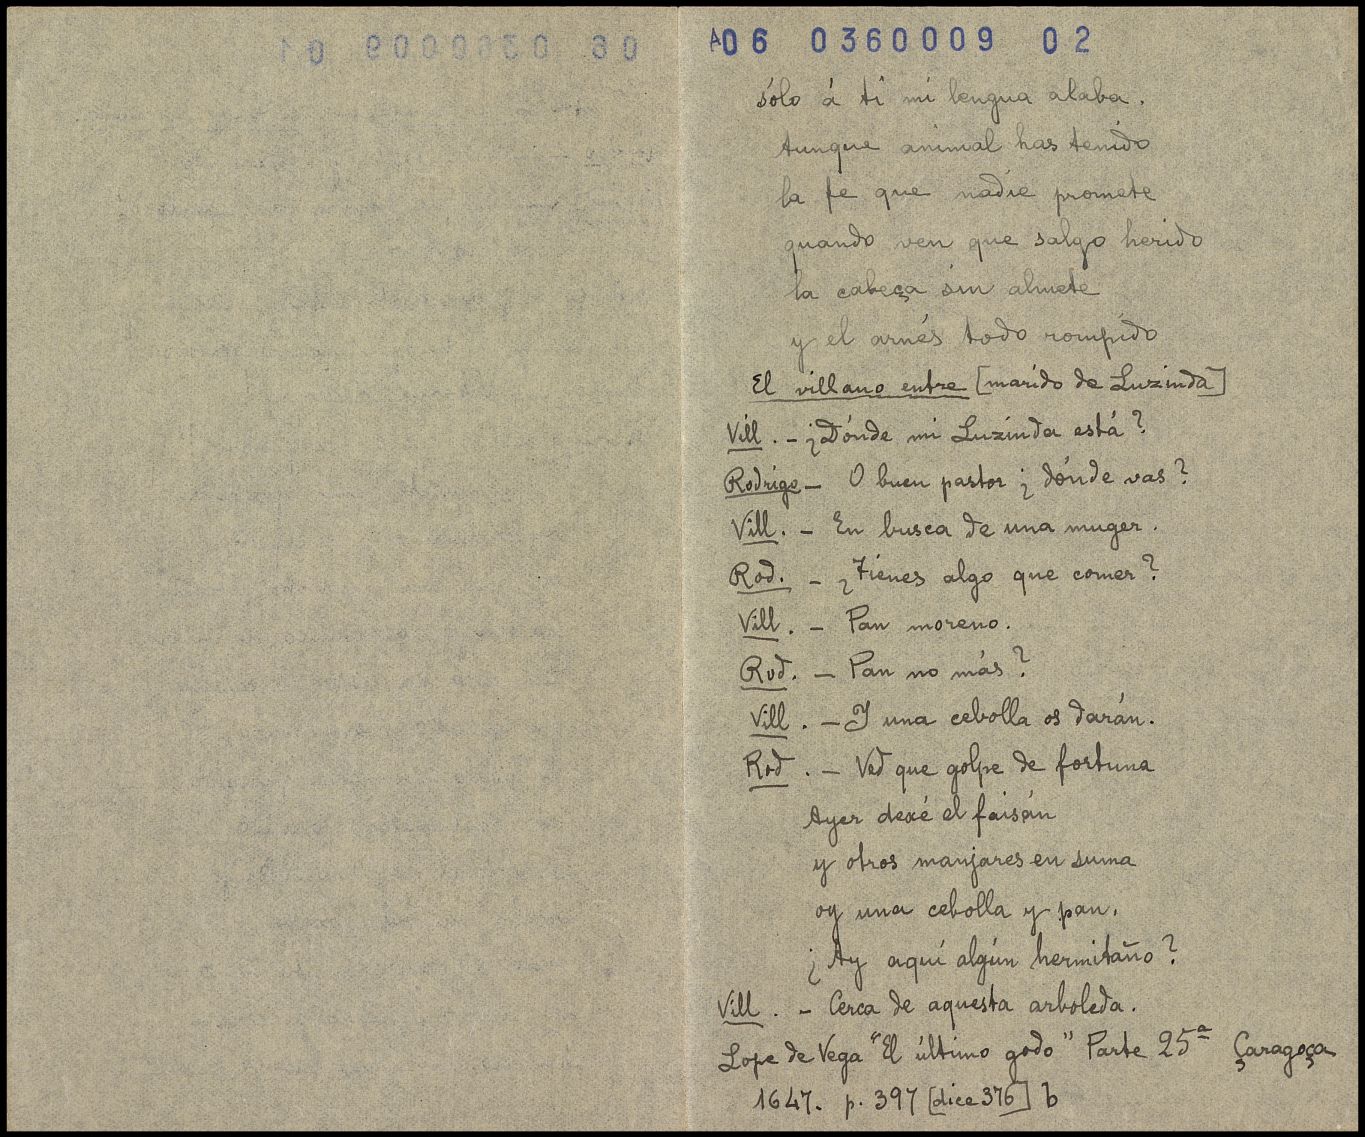 A06 0360009 02
sólo á ti mi lengua alaba.
Aunque animal has tenido
la fe que nadie promete
quando ven que salgo herido
la cabeça sin almete
y el arnés todo rompido
El villano entre [marido de Luzinda]
Vill. - ¿Dónde mi Luzinda está?
Rodrigo - O buen pastor ¿dónde vas?
Vill. - En busca de una muger.
Rod. - ¿Tienes algo que comer?
Vill. - Pan moreno.
Rod. - Pan no más?
Vill. - Y una cebolla os darán.
Rod. - Ved que golpe de fortuna
Ayer dexé el faisán
y otros manjares en suma
oy una cebolla y pan.
¿Ay aquí algún hermitaño?
Vill. - Cerca de aquesta arboleda.
Lope de Vega "El último godo" Parte 25ª Çaragoça
1647. p. 397 [dice 376] b